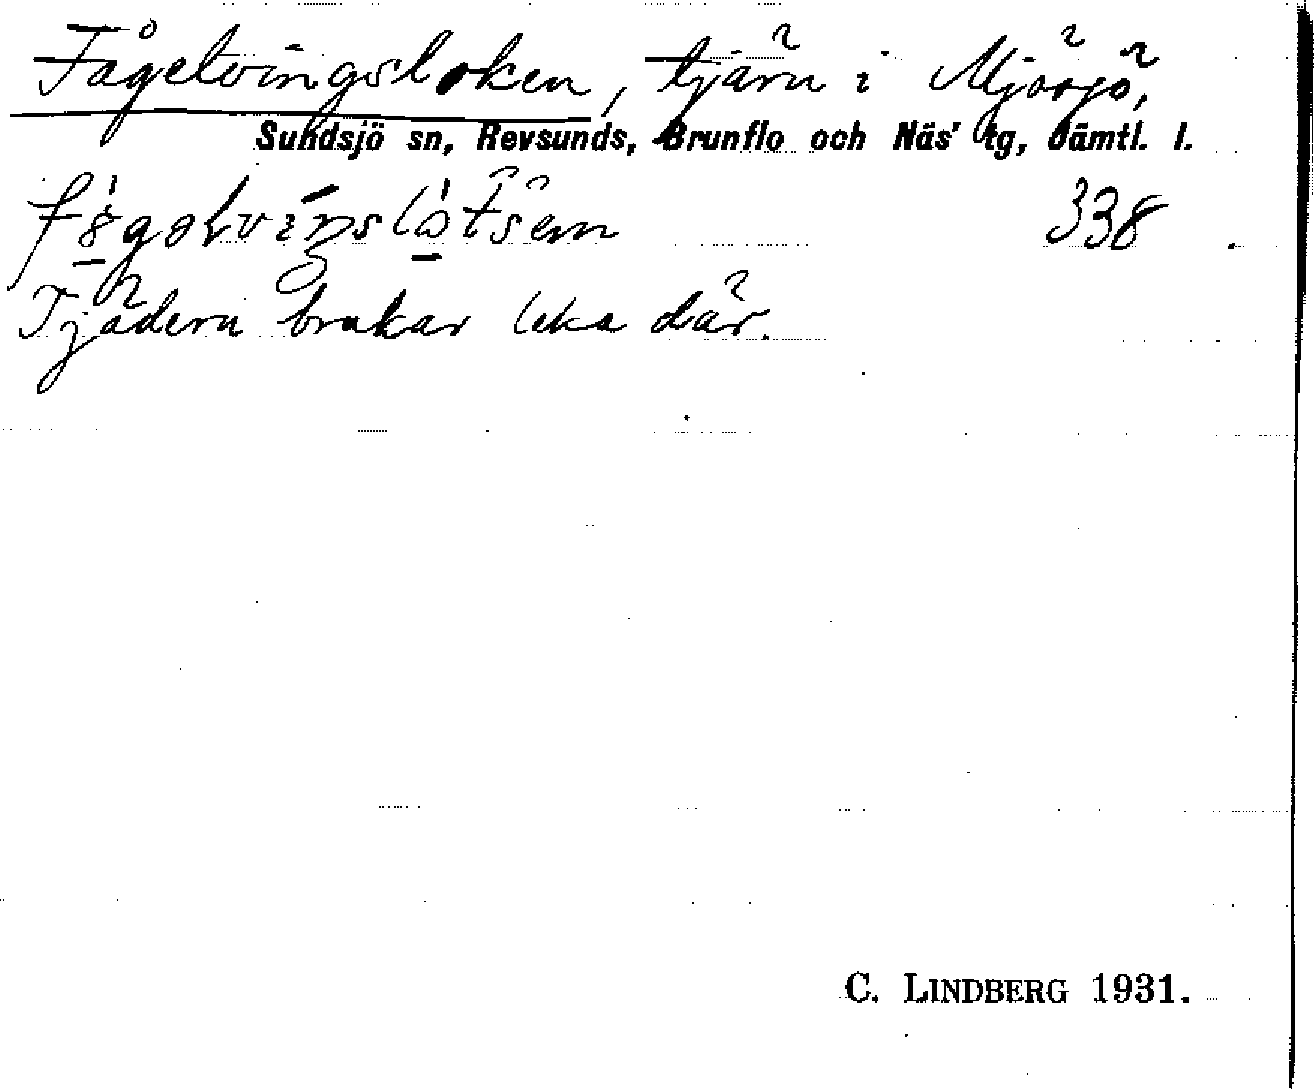 Fågelvingsloken, tjärn i Mjösjö,
Sundsjö sn, Revsunds, Brunflo och Näs' tg, Jämtl. l.
338
Tjädern brukar leka där.
C. LINDBERG 1931.